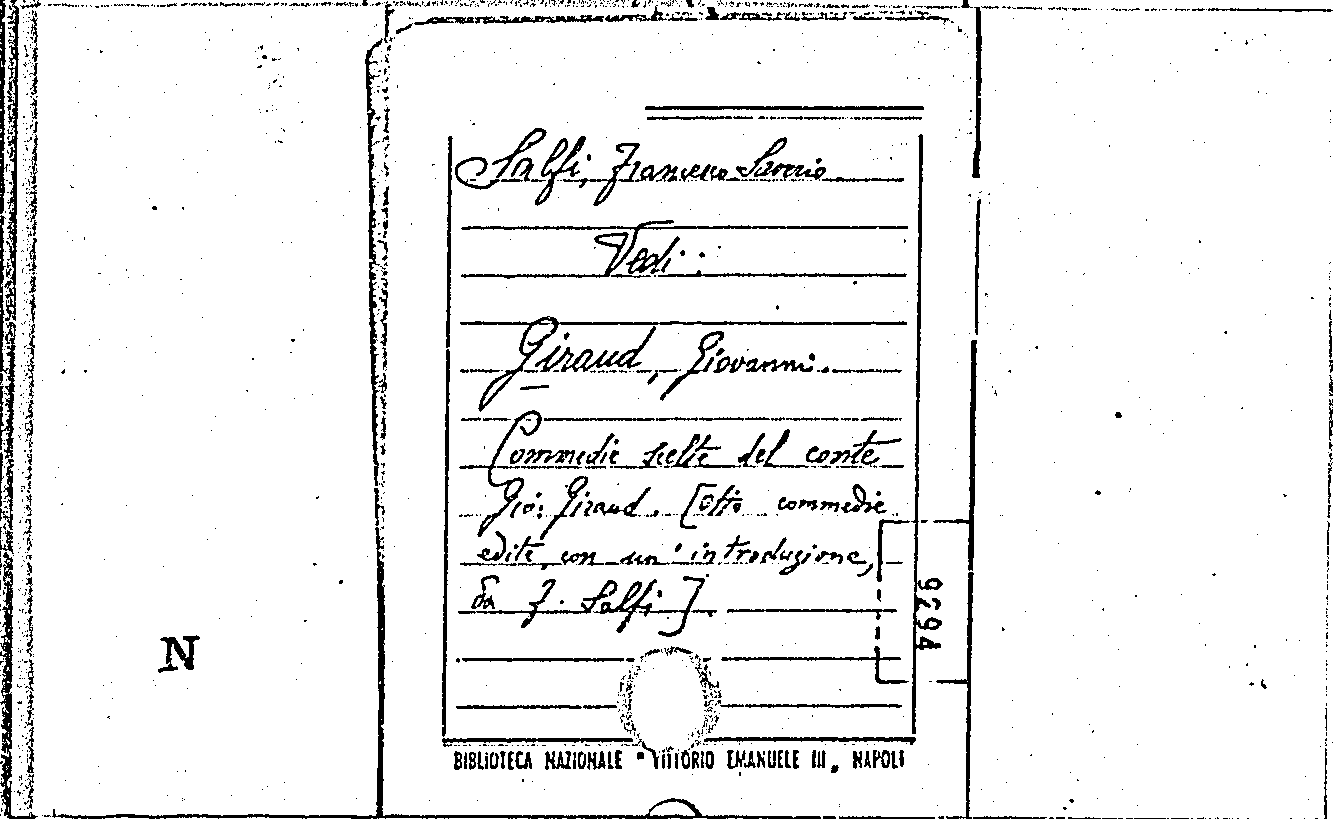 Salfi, Francesco Saverio.
Vedi:
Giraud, Giovanni.
Commedie scelte del conte
Gio: Giraud. [Otto commedie
edite, con un'introduzione,
da F. Salfi].
9294
N
BIBLIOTECA NAZIONALE "VITTORIO EMANUELE III„ NAPOLI